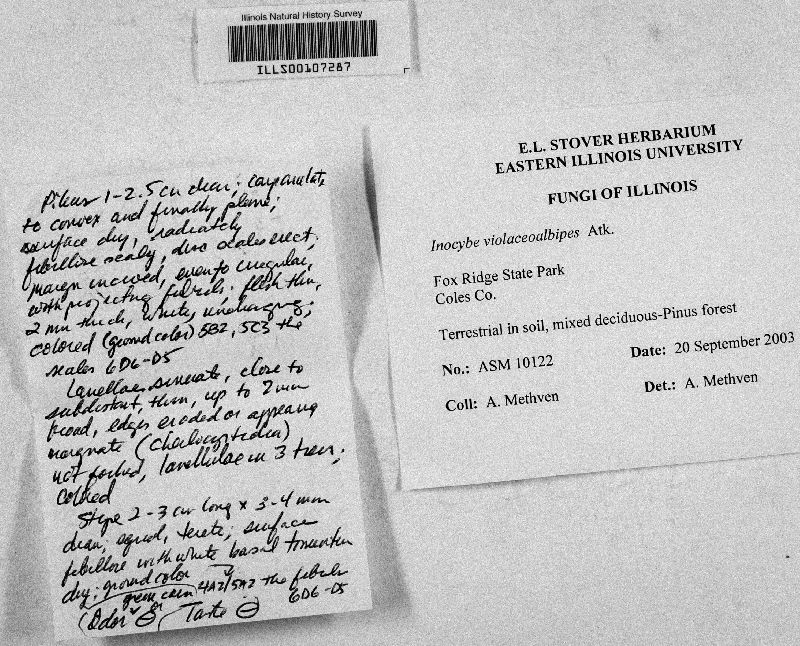 Illinois Natural History Survey
ILLS00107287
E.L. STOVER HERBARIUM
EASTERN ILLINOIS UNIVERSITY
FUNGI OF ILLINOIS
Inocybe violaceoalbipes Atk.
Fox Ridge State Park
Coles Co.
Terrestrial in soil, mixed deciduous-Pinus forest
No.: ASM 10122 Date: 20 September 2003
Coll: A. Methven Det.: A. Methven
Pileus 1-2.5 cm diam; campanulate
to convex and finally plane;
surface dry, radiately
fibrillose scaly, disc scales erect;
margin incurved, even to irregular,
with projecting fibrils. flesh thin,
2 mm thick, white, unchanging;
colored (ground color) 5B2, 5C3 the
scales 6D6-D5
Lamellae sinuate, close to
subdistant, thin, up to 2 mm
broad, edges eroded or appearing
marginate (cheilocystidia)
not forked, lamellulae in 3 tiers;
colored
Stipe 2-3 cm long x 3-4 mm
diam; equal, terete; surface
fibrillose with white basal tomentum
dry; ground color 4A2/5A2 the fibrils
6D6-D5
green corn
Odor or Taste